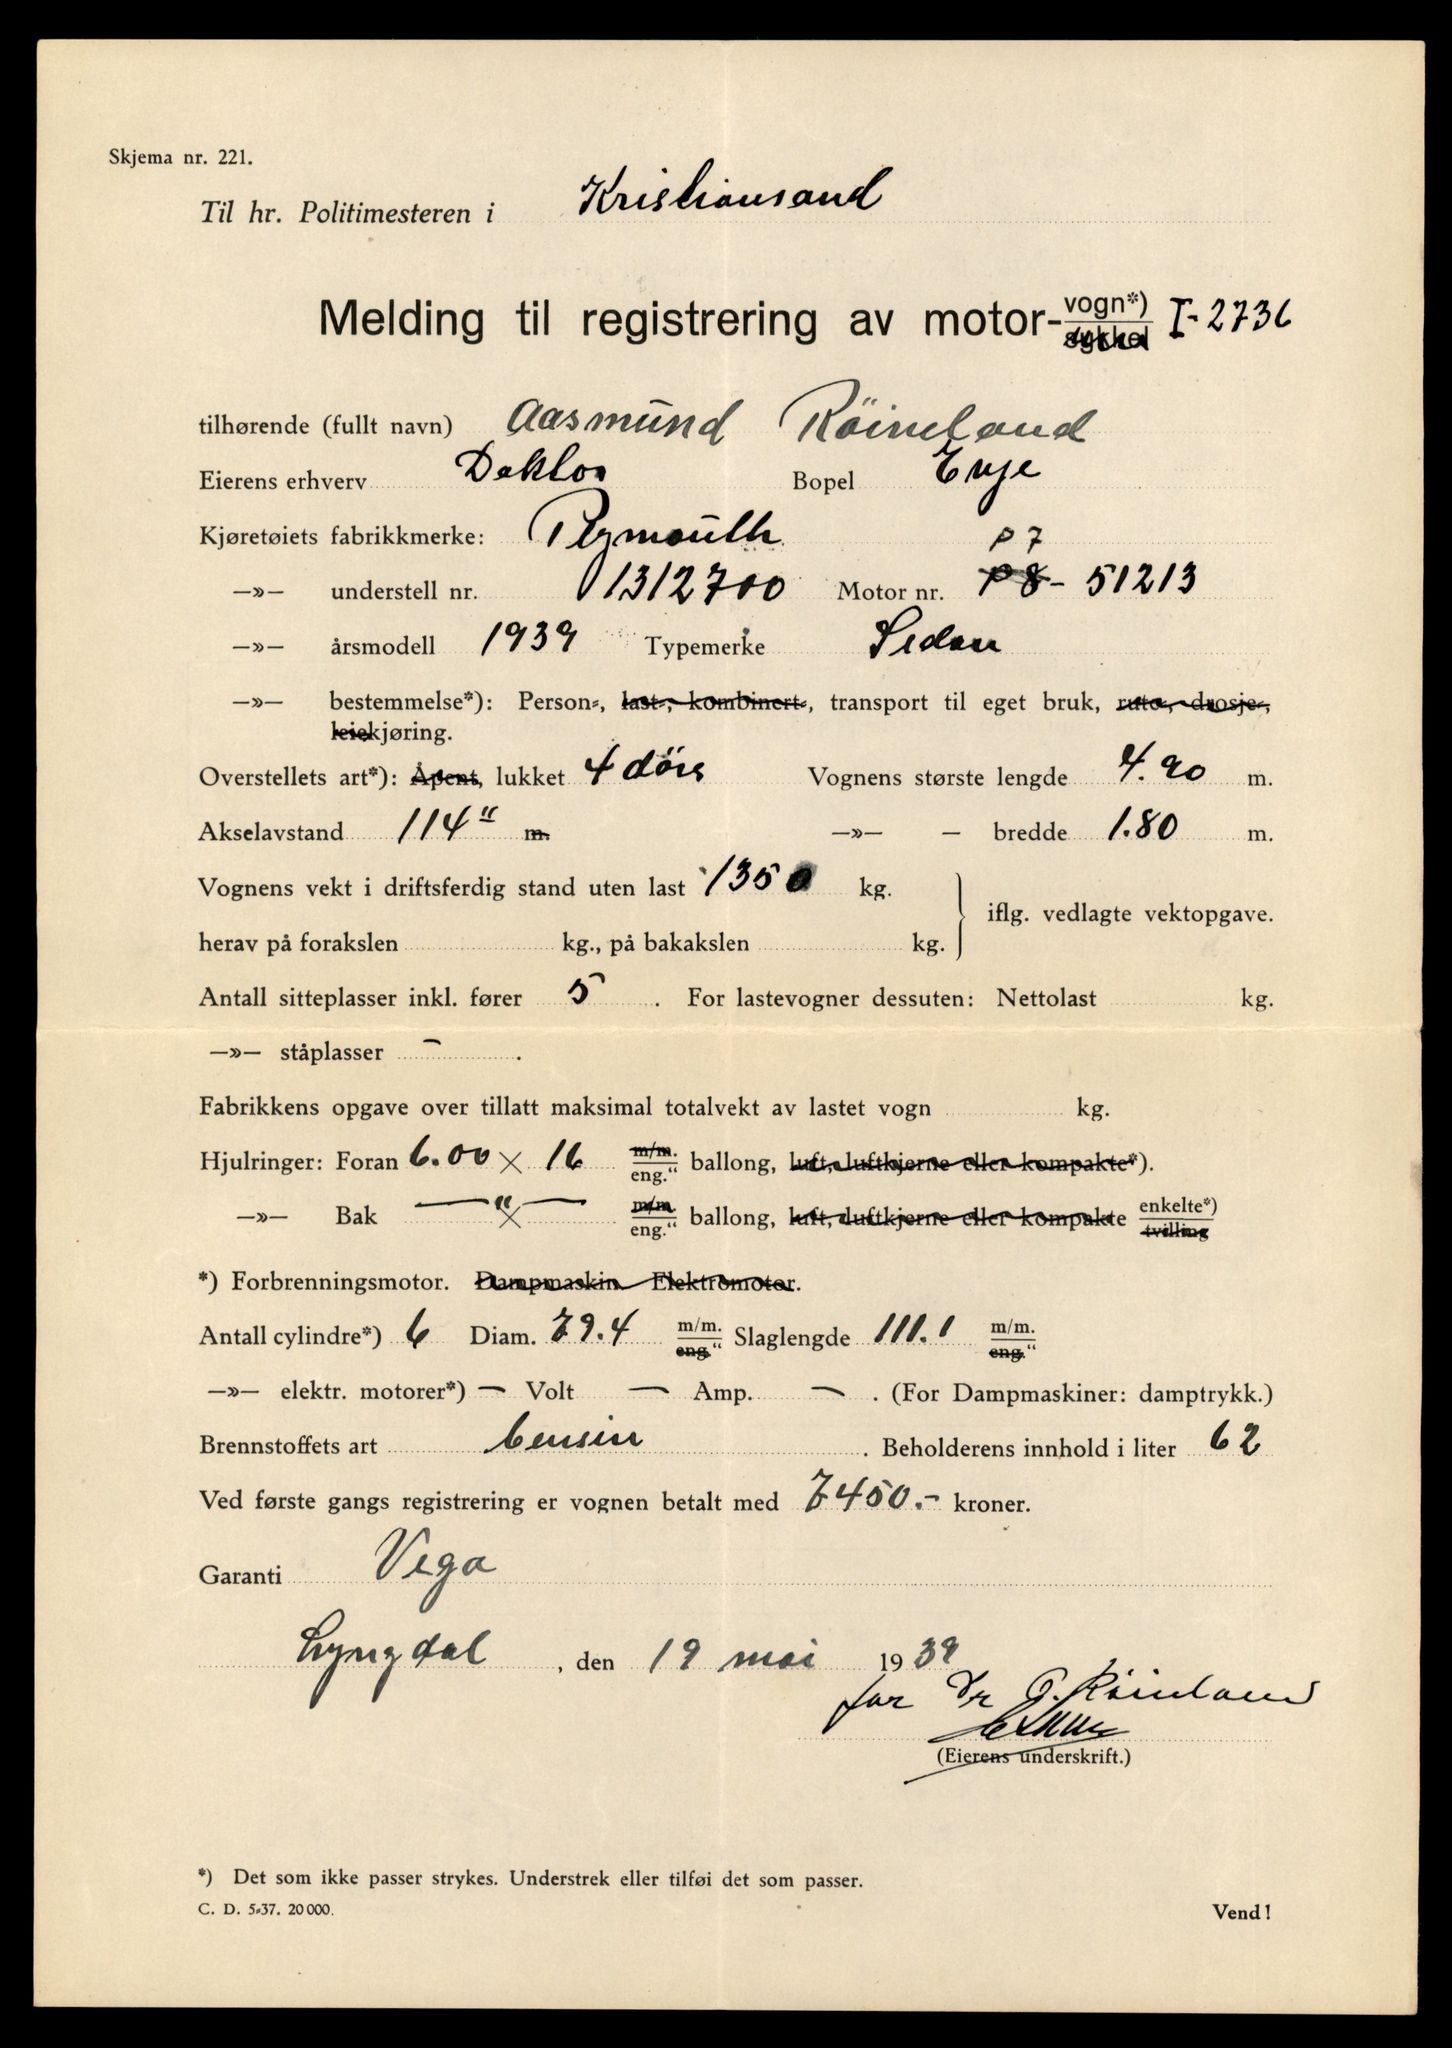 Skjema nr. 221.
Til hr. Politimesteren i Kristiansand
Melding til registrering av motor-vogn*) sykkel I-2736
tilhørende (fullt navn) Aasmund Röineland
Eierens erhverv Doktor Bopel Evje
Kjøretøiets fabrikkmerke: Plymouth P 7
—»— understell nr. 1312700 Motor nr. P 8 - 51213
—»— årsmodell 1939 Typemerke Sedan
—»— bestemmelse*): Person-, last-, kombinert-, transport til eget bruk, rute-, drosje-,
leiekjøring.
Overstellets art*): Åpent, lukket 4 dörs Vognens største lengde 4.90 m.
Akselavstand 114" m. —»— — bredde 1.80 m.
Vognens vekt i driftsferdig stand uten last 1350 kg.
iflg. vedlagte vektopgave.
herav på forakslen kg., på bakakslen kg.
Antall sitteplasser inkl. fører 5 . For lastevogner dessuten: Nettolast kg.
—»— ståplasser — .
Fabrikkens opgave over tillatt maksimal totalvekt av lastet vogn kg.
Hjulringer: Foran 6.00 × 16 m/m. eng." ballong, luft, luftkjerne eller kompakte*).
—»— Bak — " — × m/m eng." ballong, luft, luftkjerne eller kompakte enkelte*) tvilling
*) Forbrenningsmotor. Dampmaskin Elektromotor.
Antall cylindre*) 6 Diam. 79.4 m/m. eng." Slaglengde 111.1 m/m. eng."
—»— elektr. motorer*) — Volt — Amp. — . (For Dampmaskiner: damptrykk.)
Brennstoffets art bensin . Beholderens innhold i liter 62
Ved første gangs registrering er vognen betalt med 7450.- kroner.
Garanti Vega
Lyngdal , den 19 mai 1939
for Dr Röineland
(Eierens underskrift.)
*) Det som ikke passer strykes. Understrek eller tilføi det som passer.
C. D. 5-37. 20 000.
Vend!